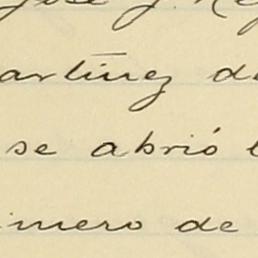 José J. Re
artínez de
se abrió l
imero de